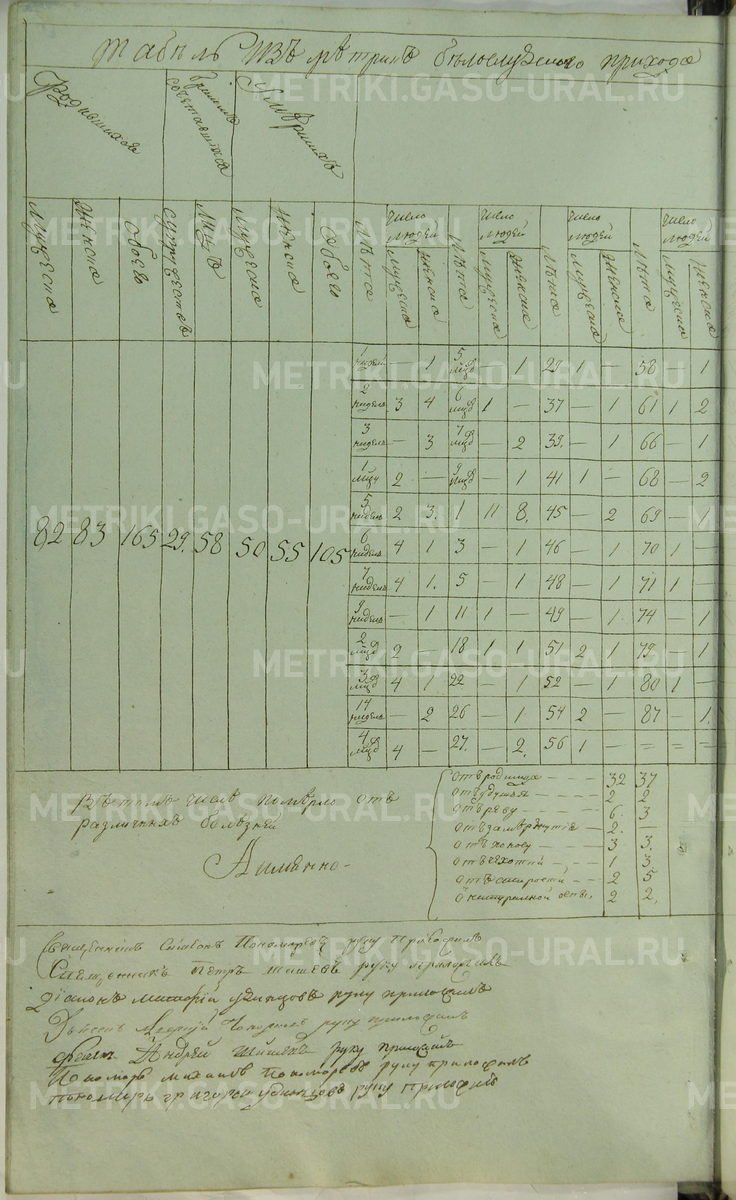 Табель изъ метрикъ белослудскаго прихода
Родившихся
бракомъ сочетавшихся
Умершихъ
число людей число людей число людей число людей
Мужеска Женска обоего супружествъ лицъ Мужеска Женска обоего Лѣта Мужеска Женска Лѣта Мужеска Женска Лѣта Мужеска Женска Лѣта Мужеска Женска
1 недел — 1 5 мцов — 1 29 1 — 58 — 1
2 недель 3 4 6 мцов 1 — 37 — 1 61 1 2
3 недель — 3 7 мцов — 2 39. — 1 66 — 1
1 мцу 2 — 9 мцов — — 41 1 — 68 — 2
5 недель 2 3. 1 11 8. 45 — 2 69 — 1
82 83 165 29. 58 50 55 105
6 недель 4 1 3 — 1 46 — 1 70 1 —
7 недель 4 1. 5 — 1 48 — 1 71 1 —
9 недель — 1 11 1 — 49 — 1 74 — 1
2 мцов 2 — 18 1 1 51 2 1 79 — 1
3 мцов 4 1 22 — 1 52 — 1 80 1 —
14 недель — 2 26 — 1 54 2 — 87 — 1.
4 мцов 4 — 27. — 2. 56 1 — = = =
Въ томъ числѣ померло отъ
различныхъ болезней
А имянно -
отъ родимца - - - 32 37
отъ удушья - - - 2 2
отъ реву - - - 6 3
отъ - - - 2. —
отъ поносу - - - 3 3.
отъ чахотки - - - 1 3.
отъ старости - - 2 5
о натуральной оспы. 2 2.
Священникъ Симеонъ Пономаревъ руку приложилъ
Священникъ Петръ руку приложилъ
Диаконъ Удинцовъ руку приложилъ
руку приложилъ
Андрей руку приложилъ
Пономарь Михаилъ Пономаревъ руку приложилъ
пономарь григорей удинцовъ руку приложилъ
METRIKI.GASO-URAL.RU